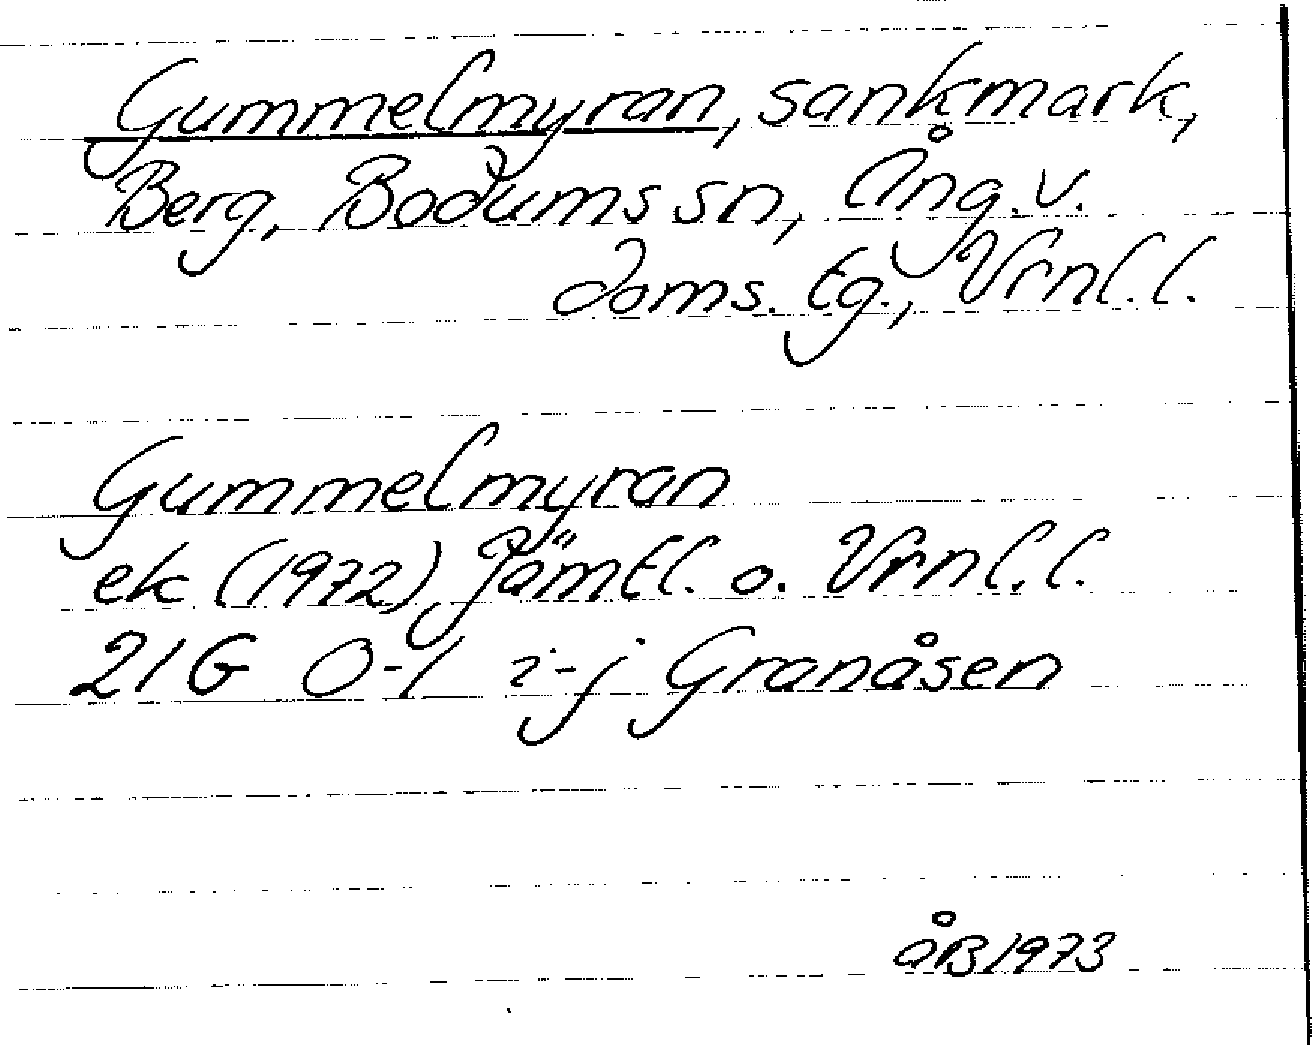 Gummelmyran, sankmark,
Berg, Bodums sn, Ång. v.
doms. tg., Vrnl. l.
Gummelmyran
ek (1972) Jämtl. o. Vrnl. l.
21G 0-1 i-j Granåsen
åB 1973